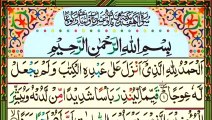 بِسْمِ اللهِ الرَّحْمٰنِ الرَّحِيْمِ
اَلْحَمْدُ لِلّٰهِ الَّذِيْۤ اَنْزَلَ عَلٰى عَبْدِهِ الْكِتٰبَ وَلَمْ يَجْعَلْ
لَّهٗ عِوَجًا قَيِّمًا لِّيُنْذِرَ بَاْسًا شَدِيْدًا مِّنْ لَّدُنْهُ وَيُبَشِّرَ